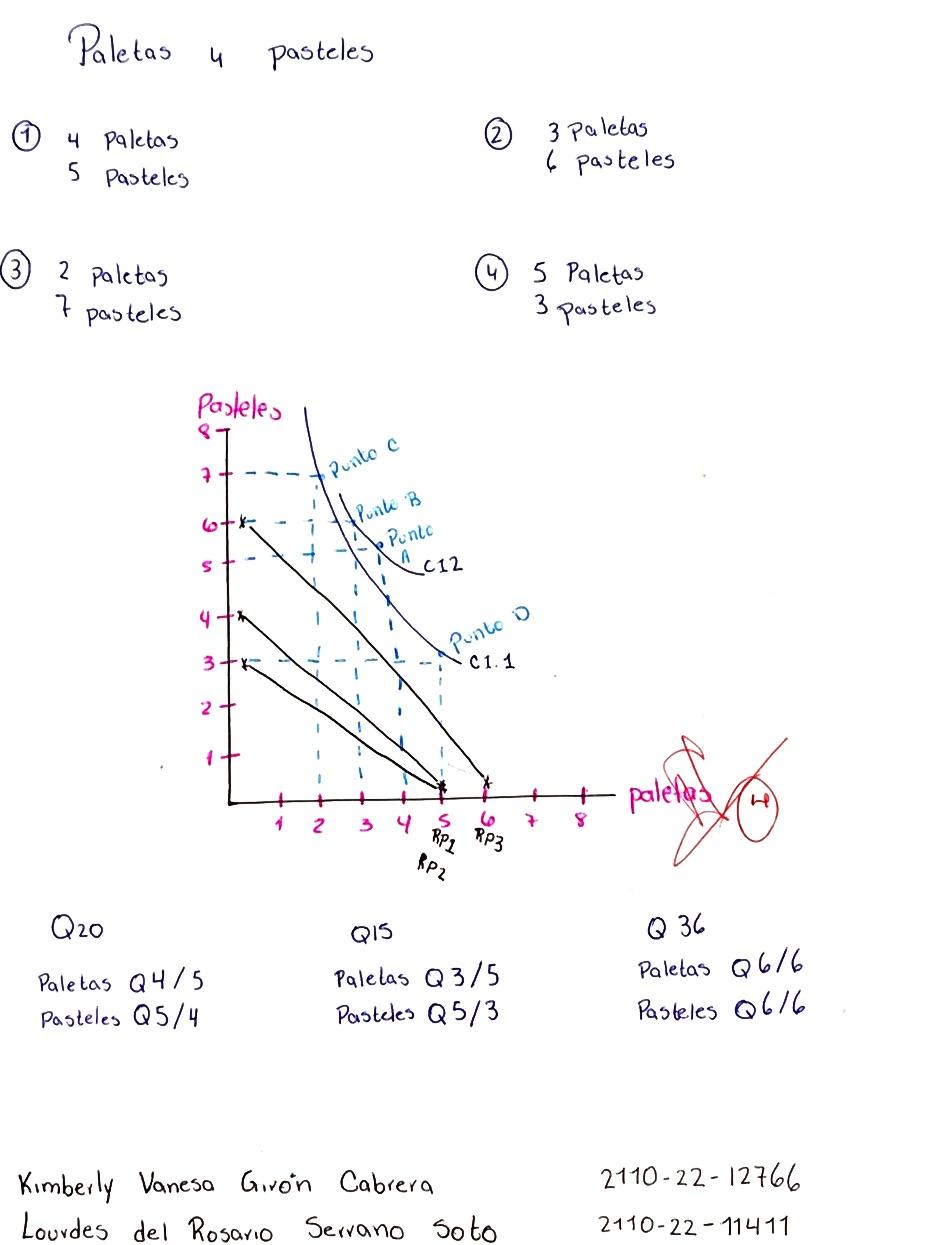 Paletas y pasteles
① 4 Paletas
5 Pasteles
② 3 Paletas
6 pasteles
③ 2 Paletas
7 pasteles
④ 5 Paletas
3 pasteles
Pasteles
8
7
6
5
4
3
2
1
Punto C
Punto B
Punto
A
C12
Punto D
C1.1
1 2 3 4 5 6 7 8
paletas
RP1
RP3
RP2
Q20
Paletas Q4/5
Pasteles Q5/4
Q15
Paletas Q3/5
Pasteles Q5/3
Q 36
Paletas Q6/6
Pasteles Q6/6
Kimberly Vanesa Girón Cabrera 2110-22-12766
Lourdes del Rosario Serrano Soto 2110-22-11411